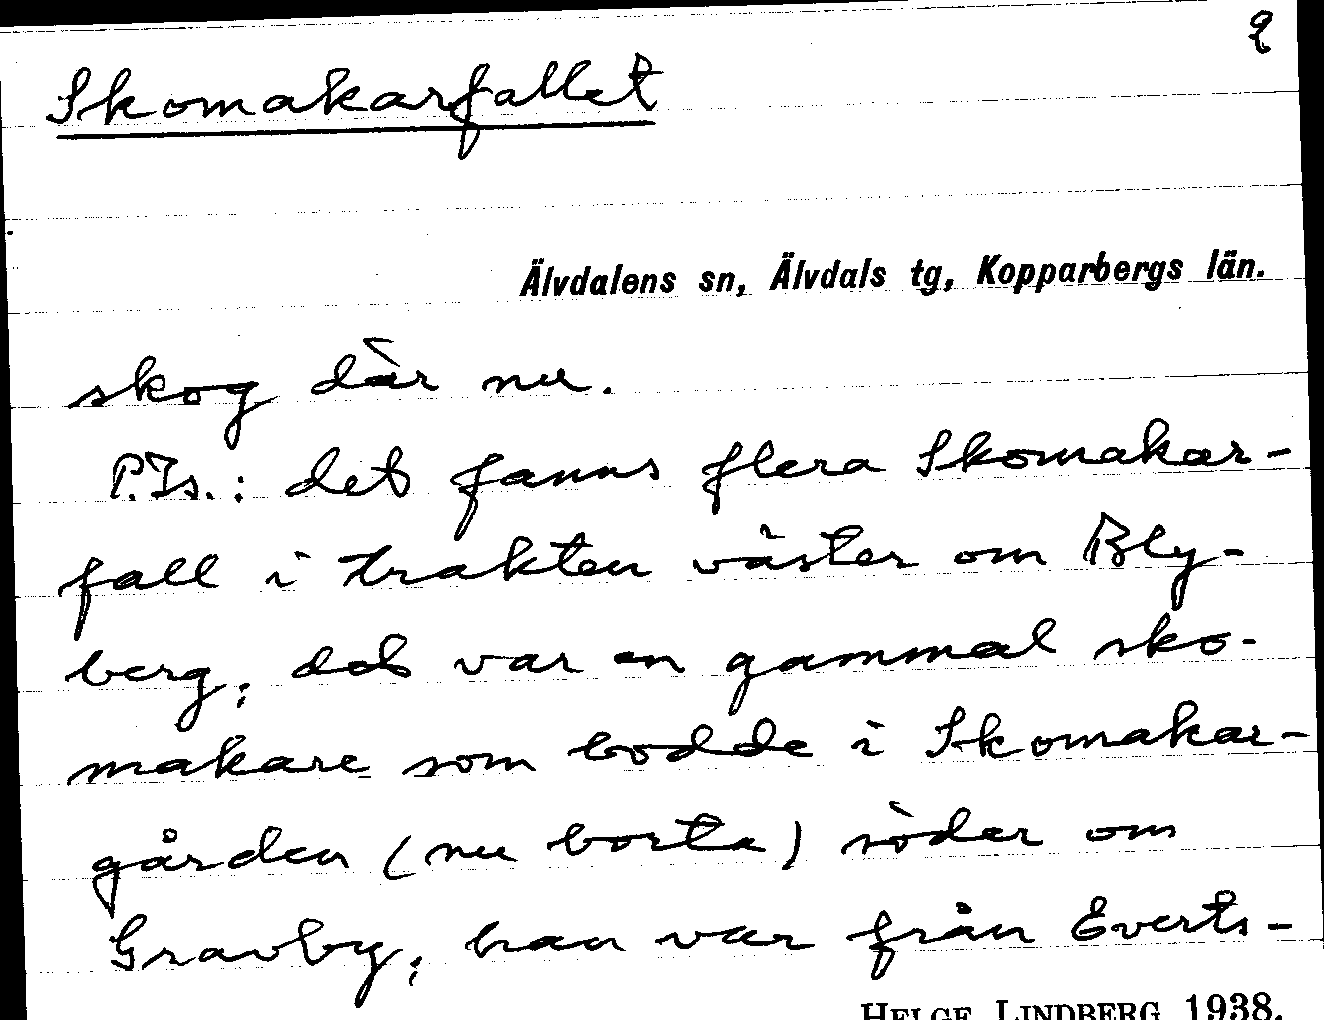 2
Skomakarfallet
Älvdalens sn, Älvdals tg, Kopparbergs län.
skog där nu.
P.Js.: det fanns flera Skomakar-
fall i trakten väster om Bly-
berg; det var en gammal sko-
makare som bodde i Skomakar-
gården (nu borta) söder om
Gravby; han var från Everts-
HELGE LINDBERG 1938.